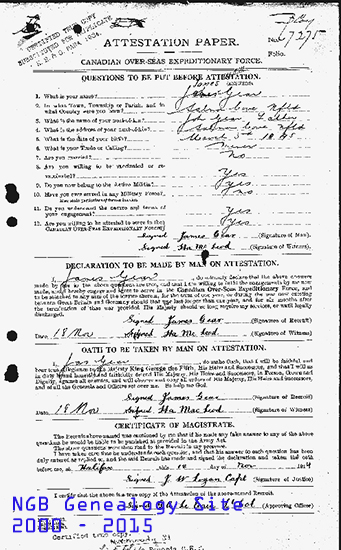 CERTIFIED TRUE COPY
SUBSTITUTED FOR DUPLICATE
ATTESTATION PAPER.
No. 67275
Folio.
CANADIAN OVER-SEAS EXPEDITIONARY FORCE.
QUESTIONS TO BE PUT BEFORE ATTESTATION.
1. What is your name?
2. In what Town, Township or Parish, and in
what Country were you born? Salmon Cove Nfld
3. What is the name of your next-of-kin? John Gear, Father
4. What is the address of your next-of-kin? Salmon Cove Nfld
5. What is the date of your birth? March 5th
6. What is your Trade or Calling? Miner
7. Are you married? No
8. Are you willing to be vaccinated or re-
vaccinated? Yes
9. Do you now belong to the Active Militia? Yes
10. Have you ever served in any Military Force?
11. Do you understand the nature and terms of
your engagement? Yes
12. Are you willing to be attested to serve in the
CANADIAN OVER-SEAS EXPEDITIONARY FORCE? Yes
Signed James Gear (Signature of Man).
Signed Ha Mc Leod (Signature of Witness).
DECLARATION TO BE MADE BY MAN ON ATTESTATION.
I, James Gear, do solemnly declare that the above answers
made by me to the above questions are true, and that I am willing to fulfil the engagements by me now
made, and I hereby engage and agree to serve in the Canadian Over-Seas Expeditionary Force, and
to be attached to any arm of the service therein, for the term of one year, or during the war now existing
between Great Britain and Germany should that war last longer than one year, and for six months after
the termination of that war provided His Majesty should so long require my services, or until legally
discharged.
Signed James Gear (Signature of Recruit)
Date 18 Nov Signed Ha Mc Leod (Signature of Witness)
OATH TO BE TAKEN BY MAN ON ATTESTATION.
I, Jas Gear, do make Oath, that I will be faithful and
bear true Allegiance to His Majesty King George the Fifth, His Heirs and Successors, and that I will as
in duty bound honestly and faithfully defend His Majesty, His Heirs and Successors, in Person, Crown and
Dignity, against all enemies, and will observe and obey all orders of His Majesty, His Heirs and Successors,
and of all the Generals and Officers set over me. So help me God.
Signed James Gear (Signature of Recruit)
Date 18 Nov Signed Ha Mc Leod (Signature of Witness)
CERTIFICATE OF MAGISTRATE.
The Recruit above-named was cautioned by me that if he made any false answer to any of the above
questions he would be liable to be punished as provided in the Army Act.
The above questions were then read to the Recruit in my presence.
I have taken care that he understands each question, and that his answer to each question has been
duly entered as replied to, and the said Recruit has made and signed the declaration and taken the oath
before me, at Halifax this 18 day of Nov 1914
Signed J. W. Logan Capt (Signature of Justice)
I certify that the above is a true copy of the Attestation of the above-named Recruit.
(Approving Officer)
NGB Genealogy Site
Certified true copy